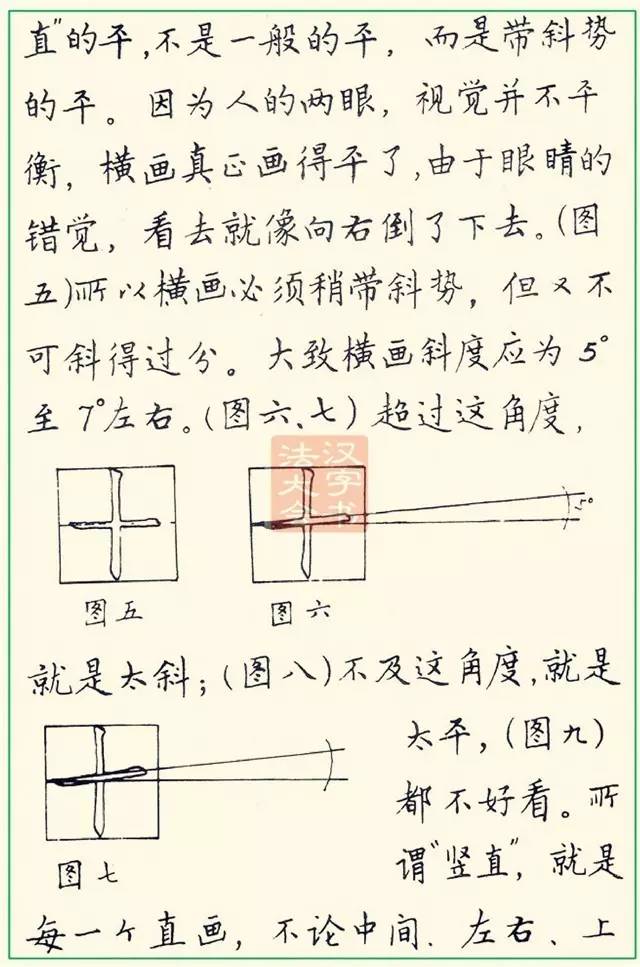 直"的平,不是一般的平，而是带斜势
的平。因为人的两眼，视觉并不平
衡，横画真正画得平了,由于眼睛的
错觉，看去就像向右倒了下去。(图
五)所以横画必须稍带斜势，但又不
可斜得过分。大致横画斜度应为5°
至7°左右。(图六、七)超过这角度，
汉字书法大全
5°
图五
图六
就是太斜；(图八)不及这角度,就是
太平，(图九)
都不好看。所
谓"竖直"，就是
图七
每一个直画，不论中间、左右、上